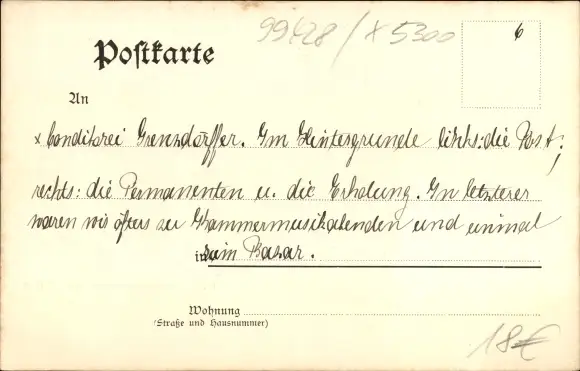 99428 / x 5300
6
Postkarte
An
x Conditorei Grenzdörffer. Im Hintergrunde links: die Post,
rechts: die Permanenten u. die Erholung. In letzterer
waren wir öfters zu Kammermusikabenden und einmal
in zum Bazar.
Wohnung
(Straße und Hausnummer)
18€